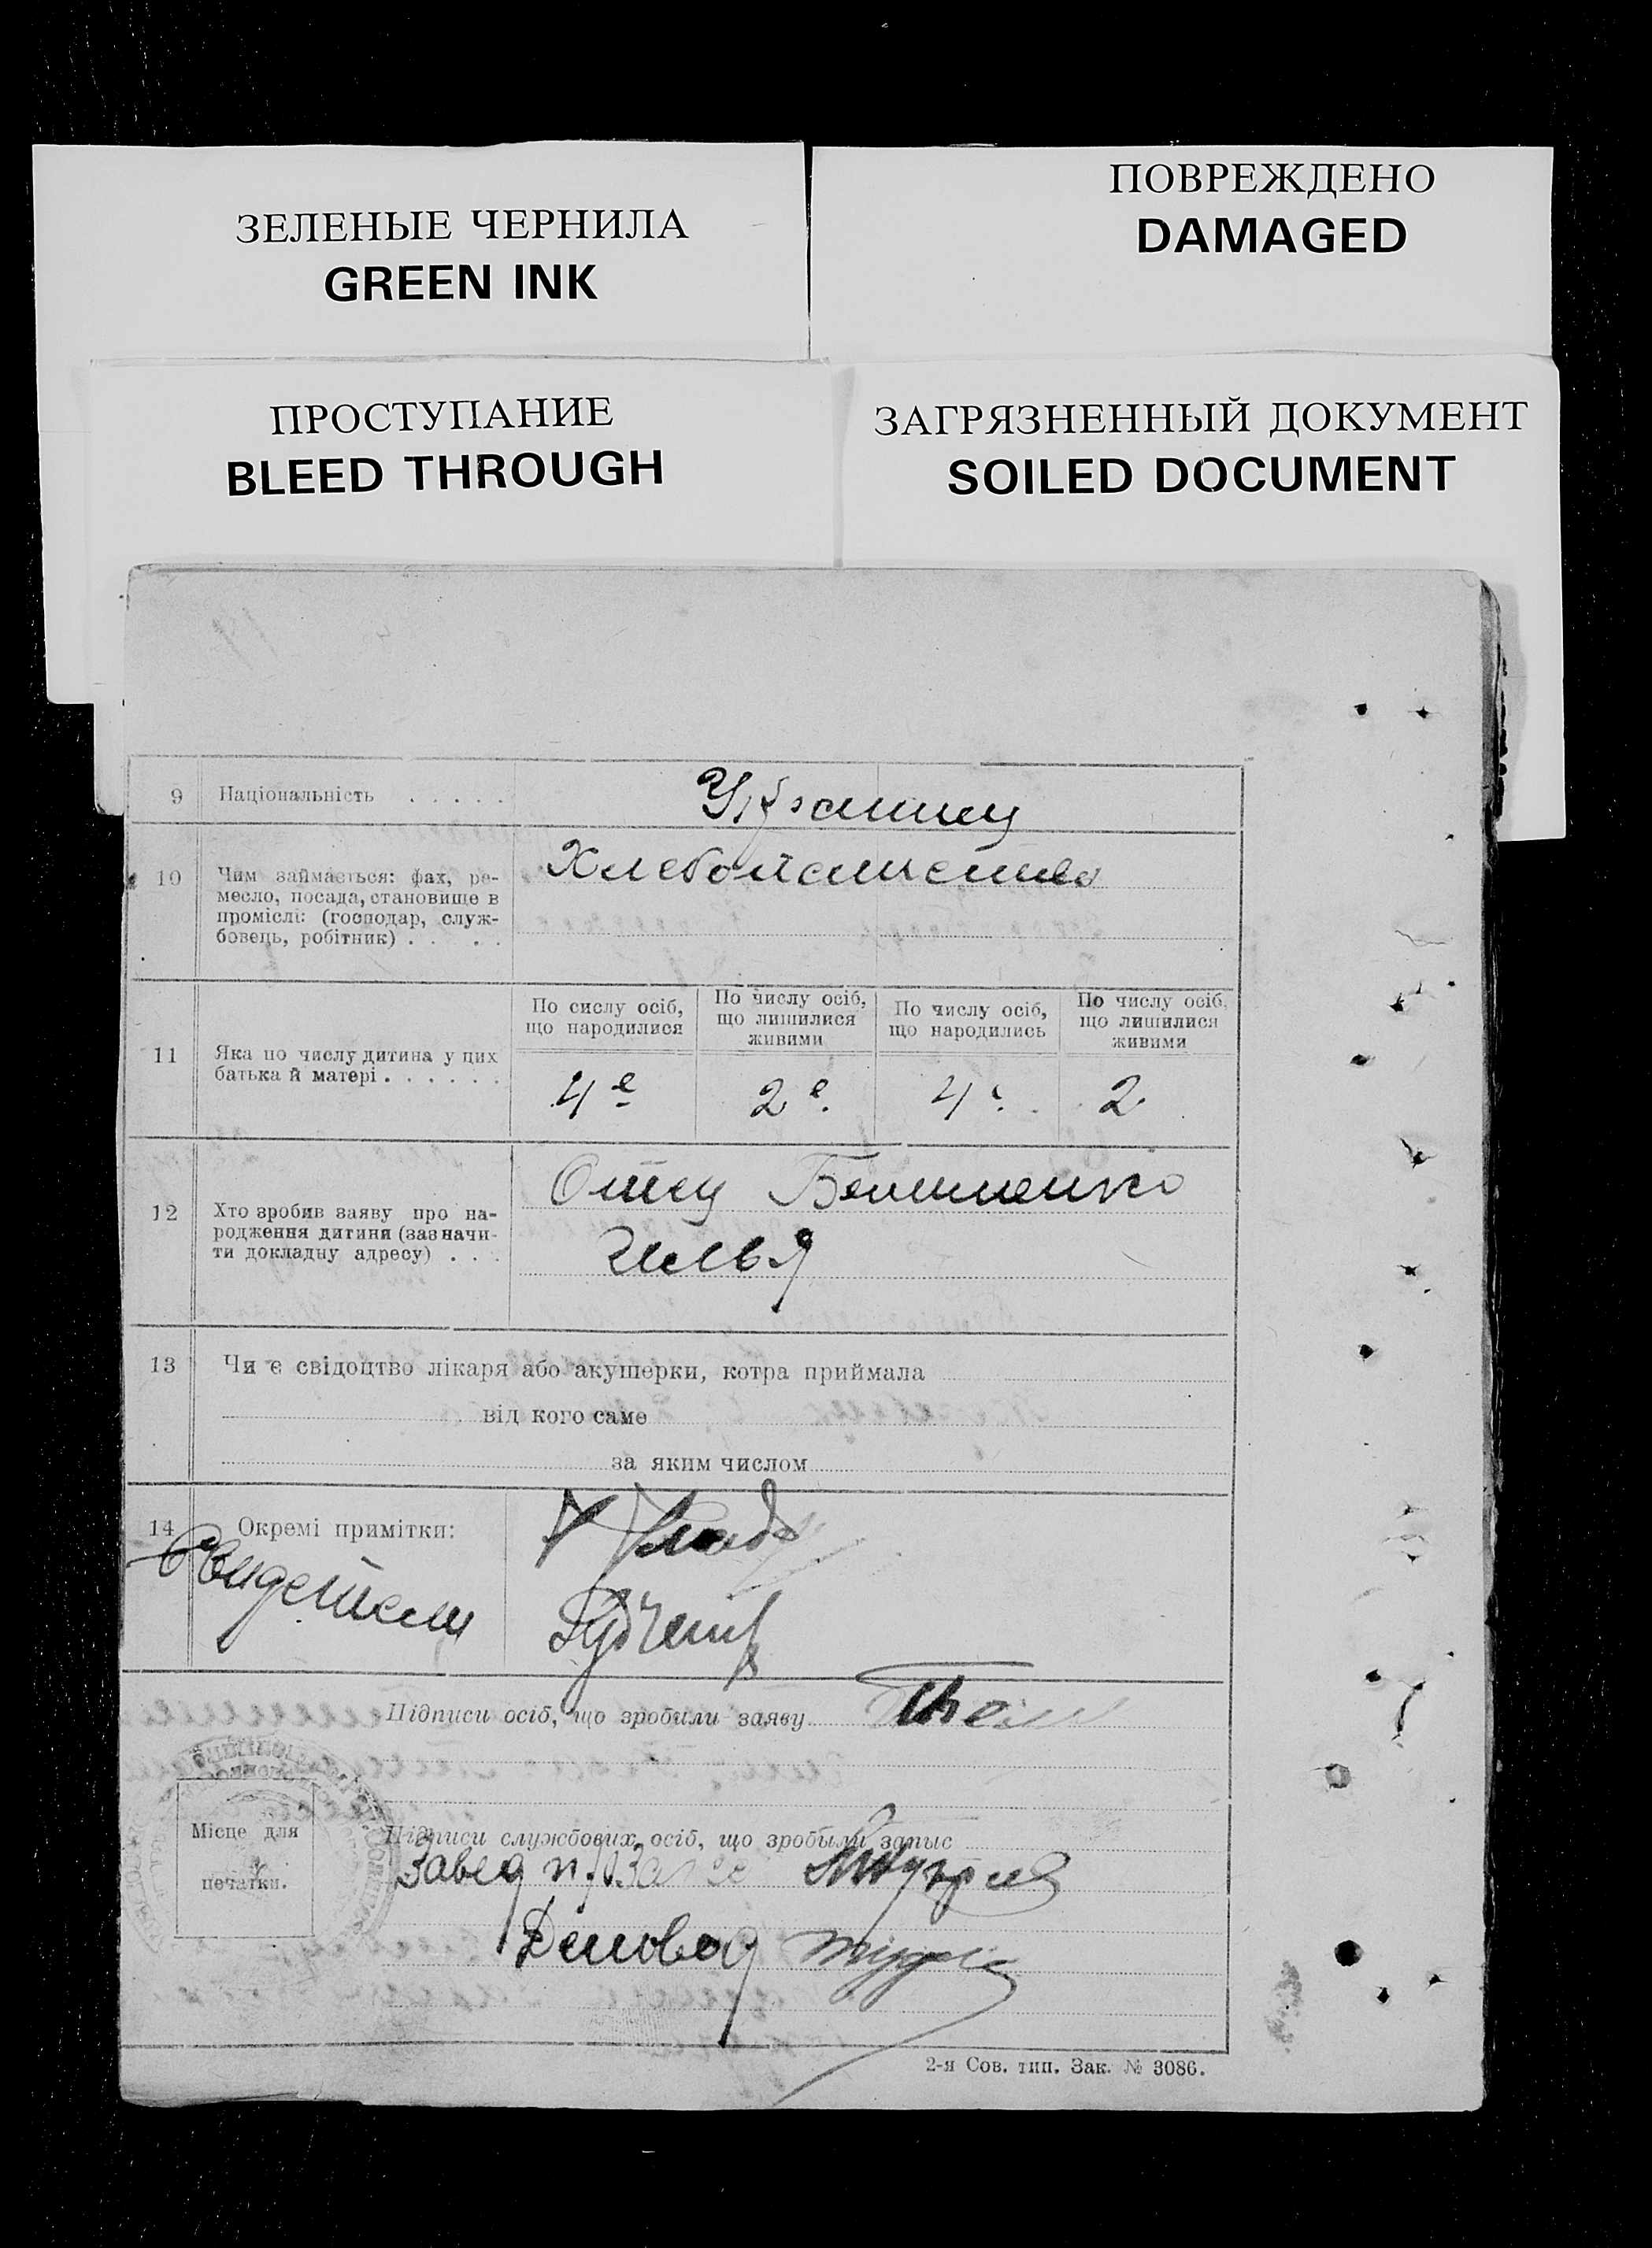 ЗЕЛЕНЫЕ ЧЕРНИЛА
GREEN INK
ПОВРЕЖДЕНО
DAMAGED
ПРОСТУПАНИЕ
BLEED THROUGH
ЗАГРЯЗНЕННЫЙ ДОКУМЕНТ
SOILED DOCUMENT
9 Національність . . . . .
Украинец
10 Чим займається: фах, ре-
месло, посада, становище в
промислі: (господар, служ-
бовець, робітник) . . . .
Хлебопашество
11 Яка по числу дитина у цих
батька й матері . . . . . .
По сислу осіб,
що народилися
По числу осіб,
що лишилися
живими
По числу осіб,
що народились
По числу осіб,
що лишилися
живими
4е 2е. 4. 2
12 Хто зробив заяву про на-
родження дитини (зазначи-
ти докладну адресу) . . .
Отец
Илья
13 Чи є свідоцтво лікаря або акушерки, котра приймала
від кого саме
за яким числом
14 Окремі примітки:
Свидетели
Підписи осіб, що зробили заяву
Місце для
печатки.
Підписи службових осіб, що зробыли запыс
Завед
Деловод
2-я Сов. тип. Зак. № 3086.